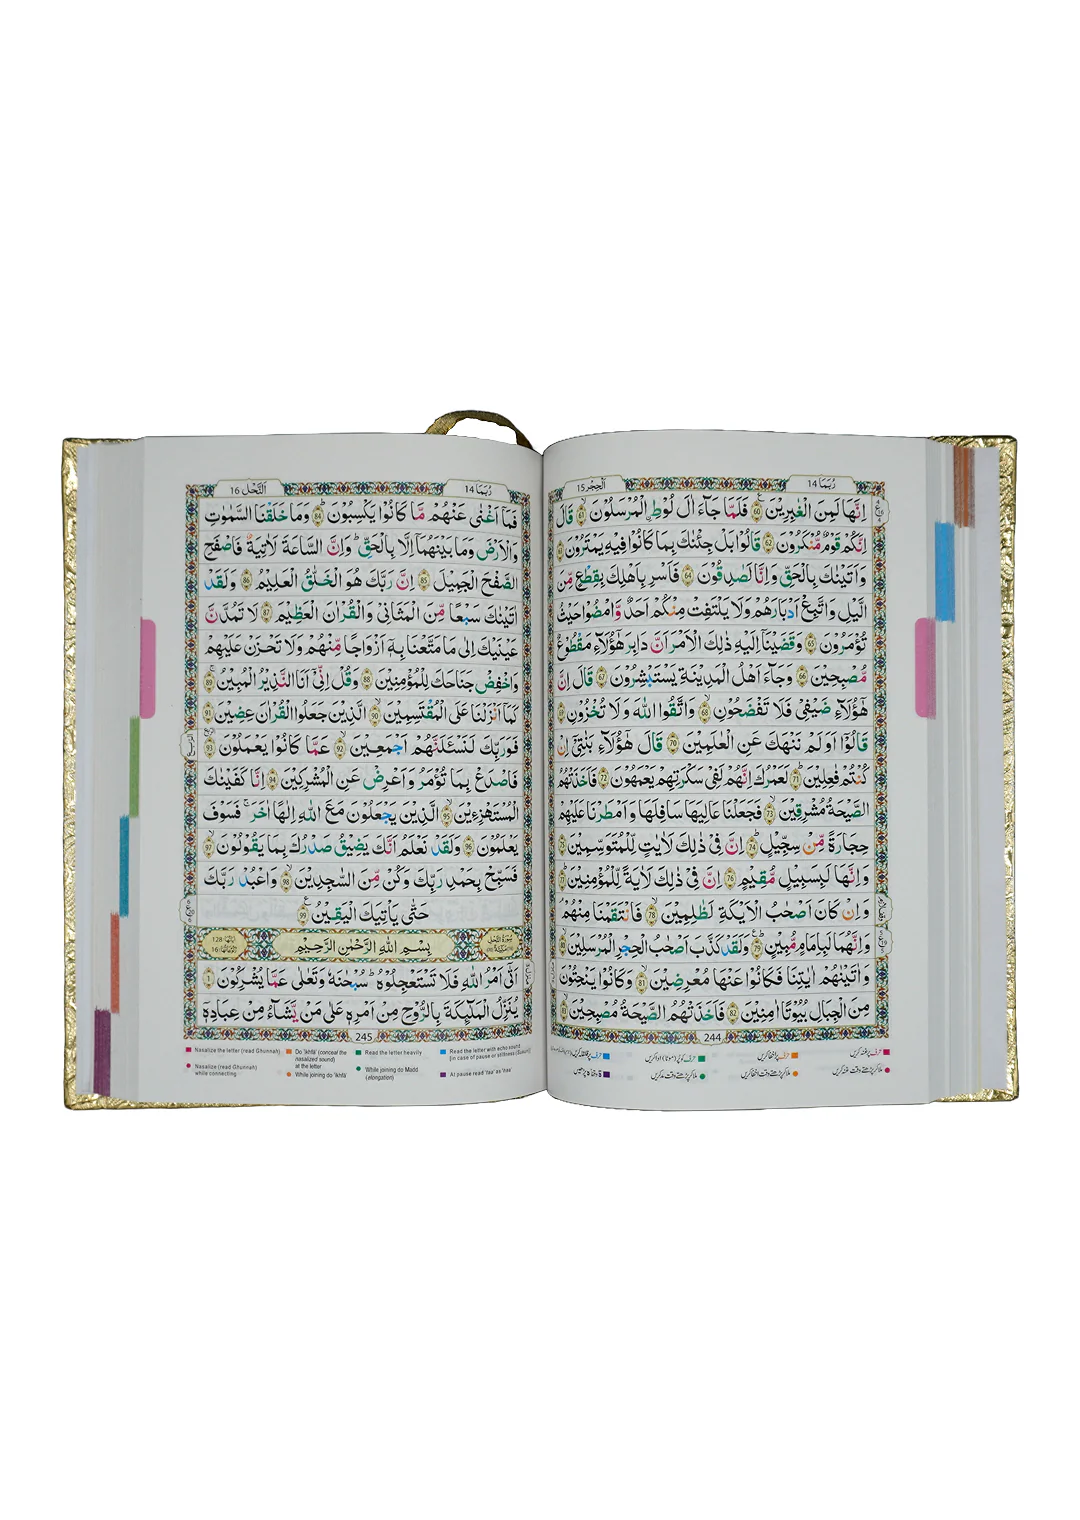 رُبَمَا 14
اَلْحِجْر 15
اِنَّهَا لَمِنَ الْغٰبِرِيْنَ 60 فَلَمَّا جَآءَ اٰلَ لُوْطِ ِۨالْمُرْسَلُوْنَ 61 قَالَ
اِنَّكُمْ قَوْمٌ مُّنْكَرُوْنَ 62 قَالُوْا بَلْ جِئْنٰكَ بِمَا كَانُوْا فِيْهِ يَمْتَرُوْنَ 63
وَاَتَيْنٰكَ بِالْحَقِّ وَاِنَّا لَصٰدِقُوْنَ 64 فَاَسْرِ بِاَهْلِكَ بِقِطْعٍ مِّنَ
الَّيْلِ وَاتَّبِعْ اَدْبَارَهُمْ وَلَا يَلْتَفِتْ مِنْكُمْ اَحَدٌ وَّامْضُوْا حَيْثُ
تُؤْمَرُوْنَ 65 وَقَضَيْنَآ اِلَيْهِ ذٰلِكَ الْاَمْرَ اَنَّ دَابِرَ هٰٓؤُلَآءِ مَقْطُوْعٌ
مُّصْبِحِيْنَ 66 وَجَآءَ اَهْلُ الْمَدِيْنَةِ يَسْتَبْشِرُوْنَ 67 قَالَ اِنَّ
هٰٓؤُلَآءِ ضَيْفِيْ فَلَا تَفْضَحُوْنِ 68 وَاتَّقُوا اللّٰهَ وَلَا تُخْزُوْنِ 69
قَالُوْٓا اَوَلَمْ نَنْهَكَ عَنِ الْعٰلَمِيْنَ 70 قَالَ هٰٓؤُلَآءِ بَنٰتِيْٓ اِنْ
كُنْتُمْ فٰعِلِيْنَ 71 لَعَمْرُكَ اِنَّهُمْ لَفِيْ سَكْرَتِهِمْ يَعْمَهُوْنَ 72 فَاَخَذَتْهُمُ
الصَّيْحَةُ مُشْرِقِيْنَ 73 فَجَعَلْنَا عَالِيَهَا سَافِلَهَا وَاَمْطَرْنَا عَلَيْهِمْ
حِجَارَةً مِّنْ سِجِّيْلٍ 74 اِنَّ فِيْ ذٰلِكَ لَاٰيٰتٍ لِّلْمُتَوَسِّمِيْنَ 75
وَاِنَّهَا لَبِسَبِيْلٍ مُّقِيْمٍ 76 اِنَّ فِيْ ذٰلِكَ لَاٰيَةً لِّلْمُؤْمِنِيْنَ 77
وَاِنْ كَانَ اَصْحٰبُ الْاَيْكَةِ لَظٰلِمِيْنَ 78 فَانْتَقَمْنَا مِنْهُمْ
وَاِنَّهُمَا لَبِاِمَامٍ مُّبِيْنٍ 79 وَلَقَدْ كَذَّبَ اَصْحٰبُ الْحِجْرِ الْمُرْسَلِيْنَ 80
وَاٰتَيْنٰهُمْ اٰيٰتِنَا فَكَانُوْا عَنْهَا مُعْرِضِيْنَ 81 وَكَانُوْا يَنْحِتُوْنَ
مِنَ الْجِبَالِ بُيُوْتًا اٰمِنِيْنَ 82 فَاَخَذَتْهُمُ الصَّيْحَةُ مُصْبِحِيْنَ 83
244
رُبَمَا 14
اَلنَّحْل 16
فَمَآ اَغْنٰى عَنْهُمْ مَّا كَانُوْا يَكْسِبُوْنَ 84 وَمَا خَلَقْنَا السَّمٰوٰتِ
وَالْاَرْضَ وَمَا بَيْنَهُمَآ اِلَّا بِالْحَقِّ وَاِنَّ السَّاعَةَ لَاٰتِيَةٌ فَاصْفَحِ
الصَّفْحَ الْجَمِيْلَ 85 اِنَّ رَبَّكَ هُوَ الْخَلّٰقُ الْعَلِيْمُ 86 وَلَقَدْ
اٰتَيْنٰكَ سَبْعًا مِّنَ الْمَثَانِيْ وَالْقُرْاٰنَ الْعَظِيْمَ 87 لَا تَمُدَّنَّ
عَيْنَيْكَ اِلٰى مَا مَتَّعْنَا بِهٖٓ اَزْوَاجًا مِّنْهُمْ وَلَا تَحْزَنْ عَلَيْهِمْ
وَاخْفِضْ جَنَاحَكَ لِلْمُؤْمِنِيْنَ 88 وَقُلْ اِنِّيْٓ اَنَا النَّذِيْرُ الْمُبِيْنُ 89
كَمَآ اَنْزَلْنَا عَلَى الْمُقْتَسِمِيْنَ 90 الَّذِيْنَ جَعَلُوا الْقُرْاٰنَ عِضِيْنَ 91
فَوَرَبِّكَ لَنَسْـَٔلَنَّهُمْ اَجْمَعِيْنَ 92 عَمَّا كَانُوْا يَعْمَلُوْنَ 93
فَاصْدَعْ بِمَا تُؤْمَرُ وَاَعْرِضْ عَنِ الْمُشْرِكِيْنَ 94 اِنَّا كَفَيْنٰكَ
الْمُسْتَهْزِءِيْنَ 95 الَّذِيْنَ يَجْعَلُوْنَ مَعَ اللّٰهِ اِلٰهًا اٰخَرَ فَسَوْفَ
يَعْلَمُوْنَ 96 وَلَقَدْ نَعْلَمُ اَنَّكَ يَضِيْقُ صَدْرُكَ بِمَا يَقُوْلُوْنَ 97
فَسَبِّحْ بِحَمْدِ رَبِّكَ وَكُنْ مِّنَ السّٰجِدِيْنَ 98 وَاعْبُدْ رَبَّكَ
حَتّٰى يَاْتِيَكَ الْيَقِيْنُ 99
بِسْمِ اللّٰهِ الرَّحْمٰنِ الرَّحِيْمِ
اَتٰٓى اَمْرُ اللّٰهِ فَلَا تَسْتَعْجِلُوْهُ سُبْحٰنَهٗ وَتَعٰلٰى عَمَّا يُشْرِكُوْنَ 1
يُنَزِّلُ الْمَلٰٓئِكَةَ بِالرُّوْحِ مِنْ اَمْرِهٖ عَلٰى مَنْ يَّشَآءُ مِنْ عِبَادِهٖٓ
245
Nasalize the letter (read Ghunnah)
Do 'ikhfā' (conceal the nasalized sound) at the letter
Read the letter heavily
Read the letter with echo sound (in case of pause or stillness (Sukun))
Nasalize (read Ghunnah) while connecting
While joining do 'ikhfā'
While joining do Madd (elongation)
At pause read 'taa' as 'haa'